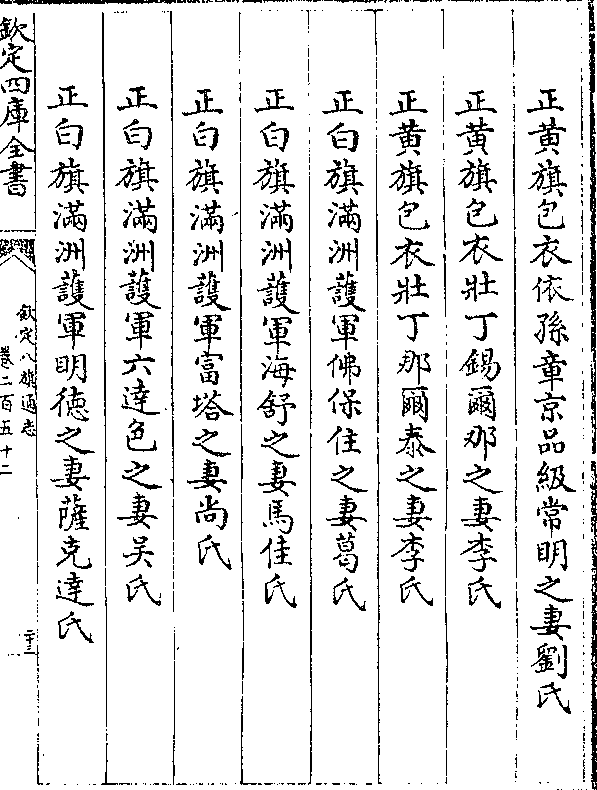 正黄旗包衣依孫章京品級常明之妻劉氏
正黄旗包衣壯丁錫爾那之妻李氏
正黄旗包衣壯丁那爾泰之妻李氏
正白旗滿洲護軍佛保住之妻葛氏
正白旗滿洲護軍海舒之妻馬佳氏
正白旗滿洲護軍富塔之妻尚氏
正白旗滿洲護軍六達色之妻吴氏
正白旗滿洲護軍明徳之妻薩克達氏
欽定四庫全書
欽定八旗通志
卷二百五十二